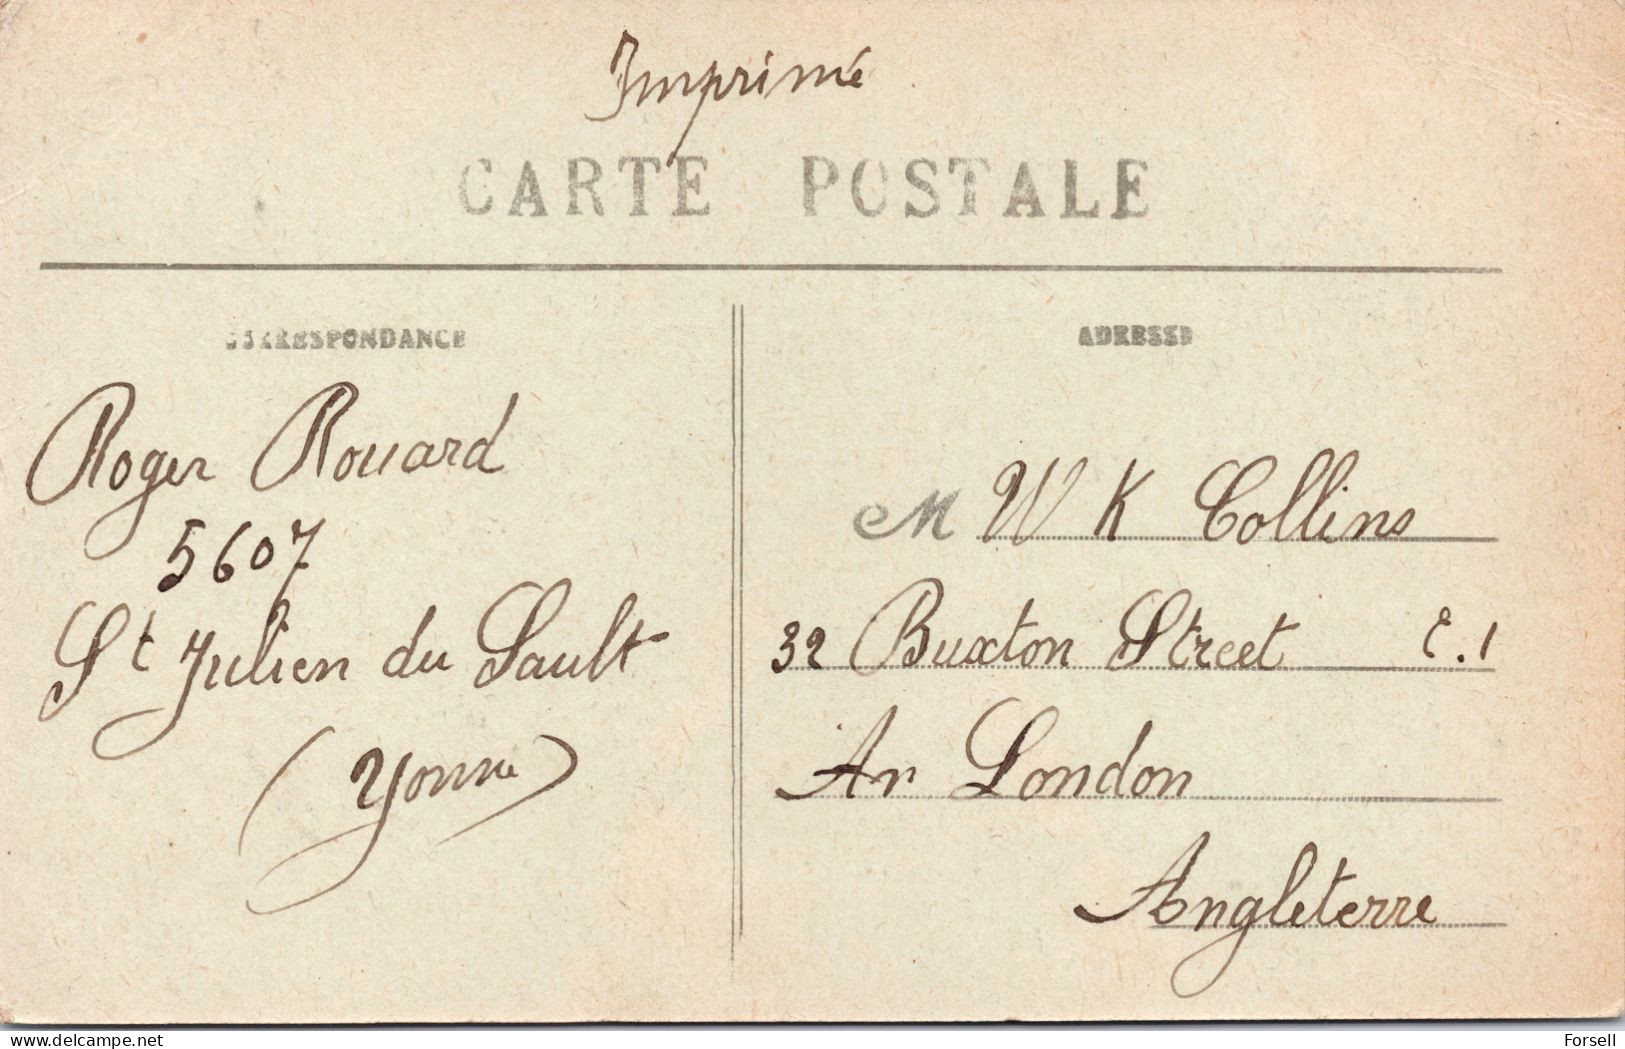 Imprimé
CARTE POSTALE
CORRESPONDANCE
ADRESSE
Roger Rouard
5607
St Julien du Sault
(Yonne)
M W K Collins
32 Buxton Street E.1
An London
Angleterre
delcampe.net
Forsell